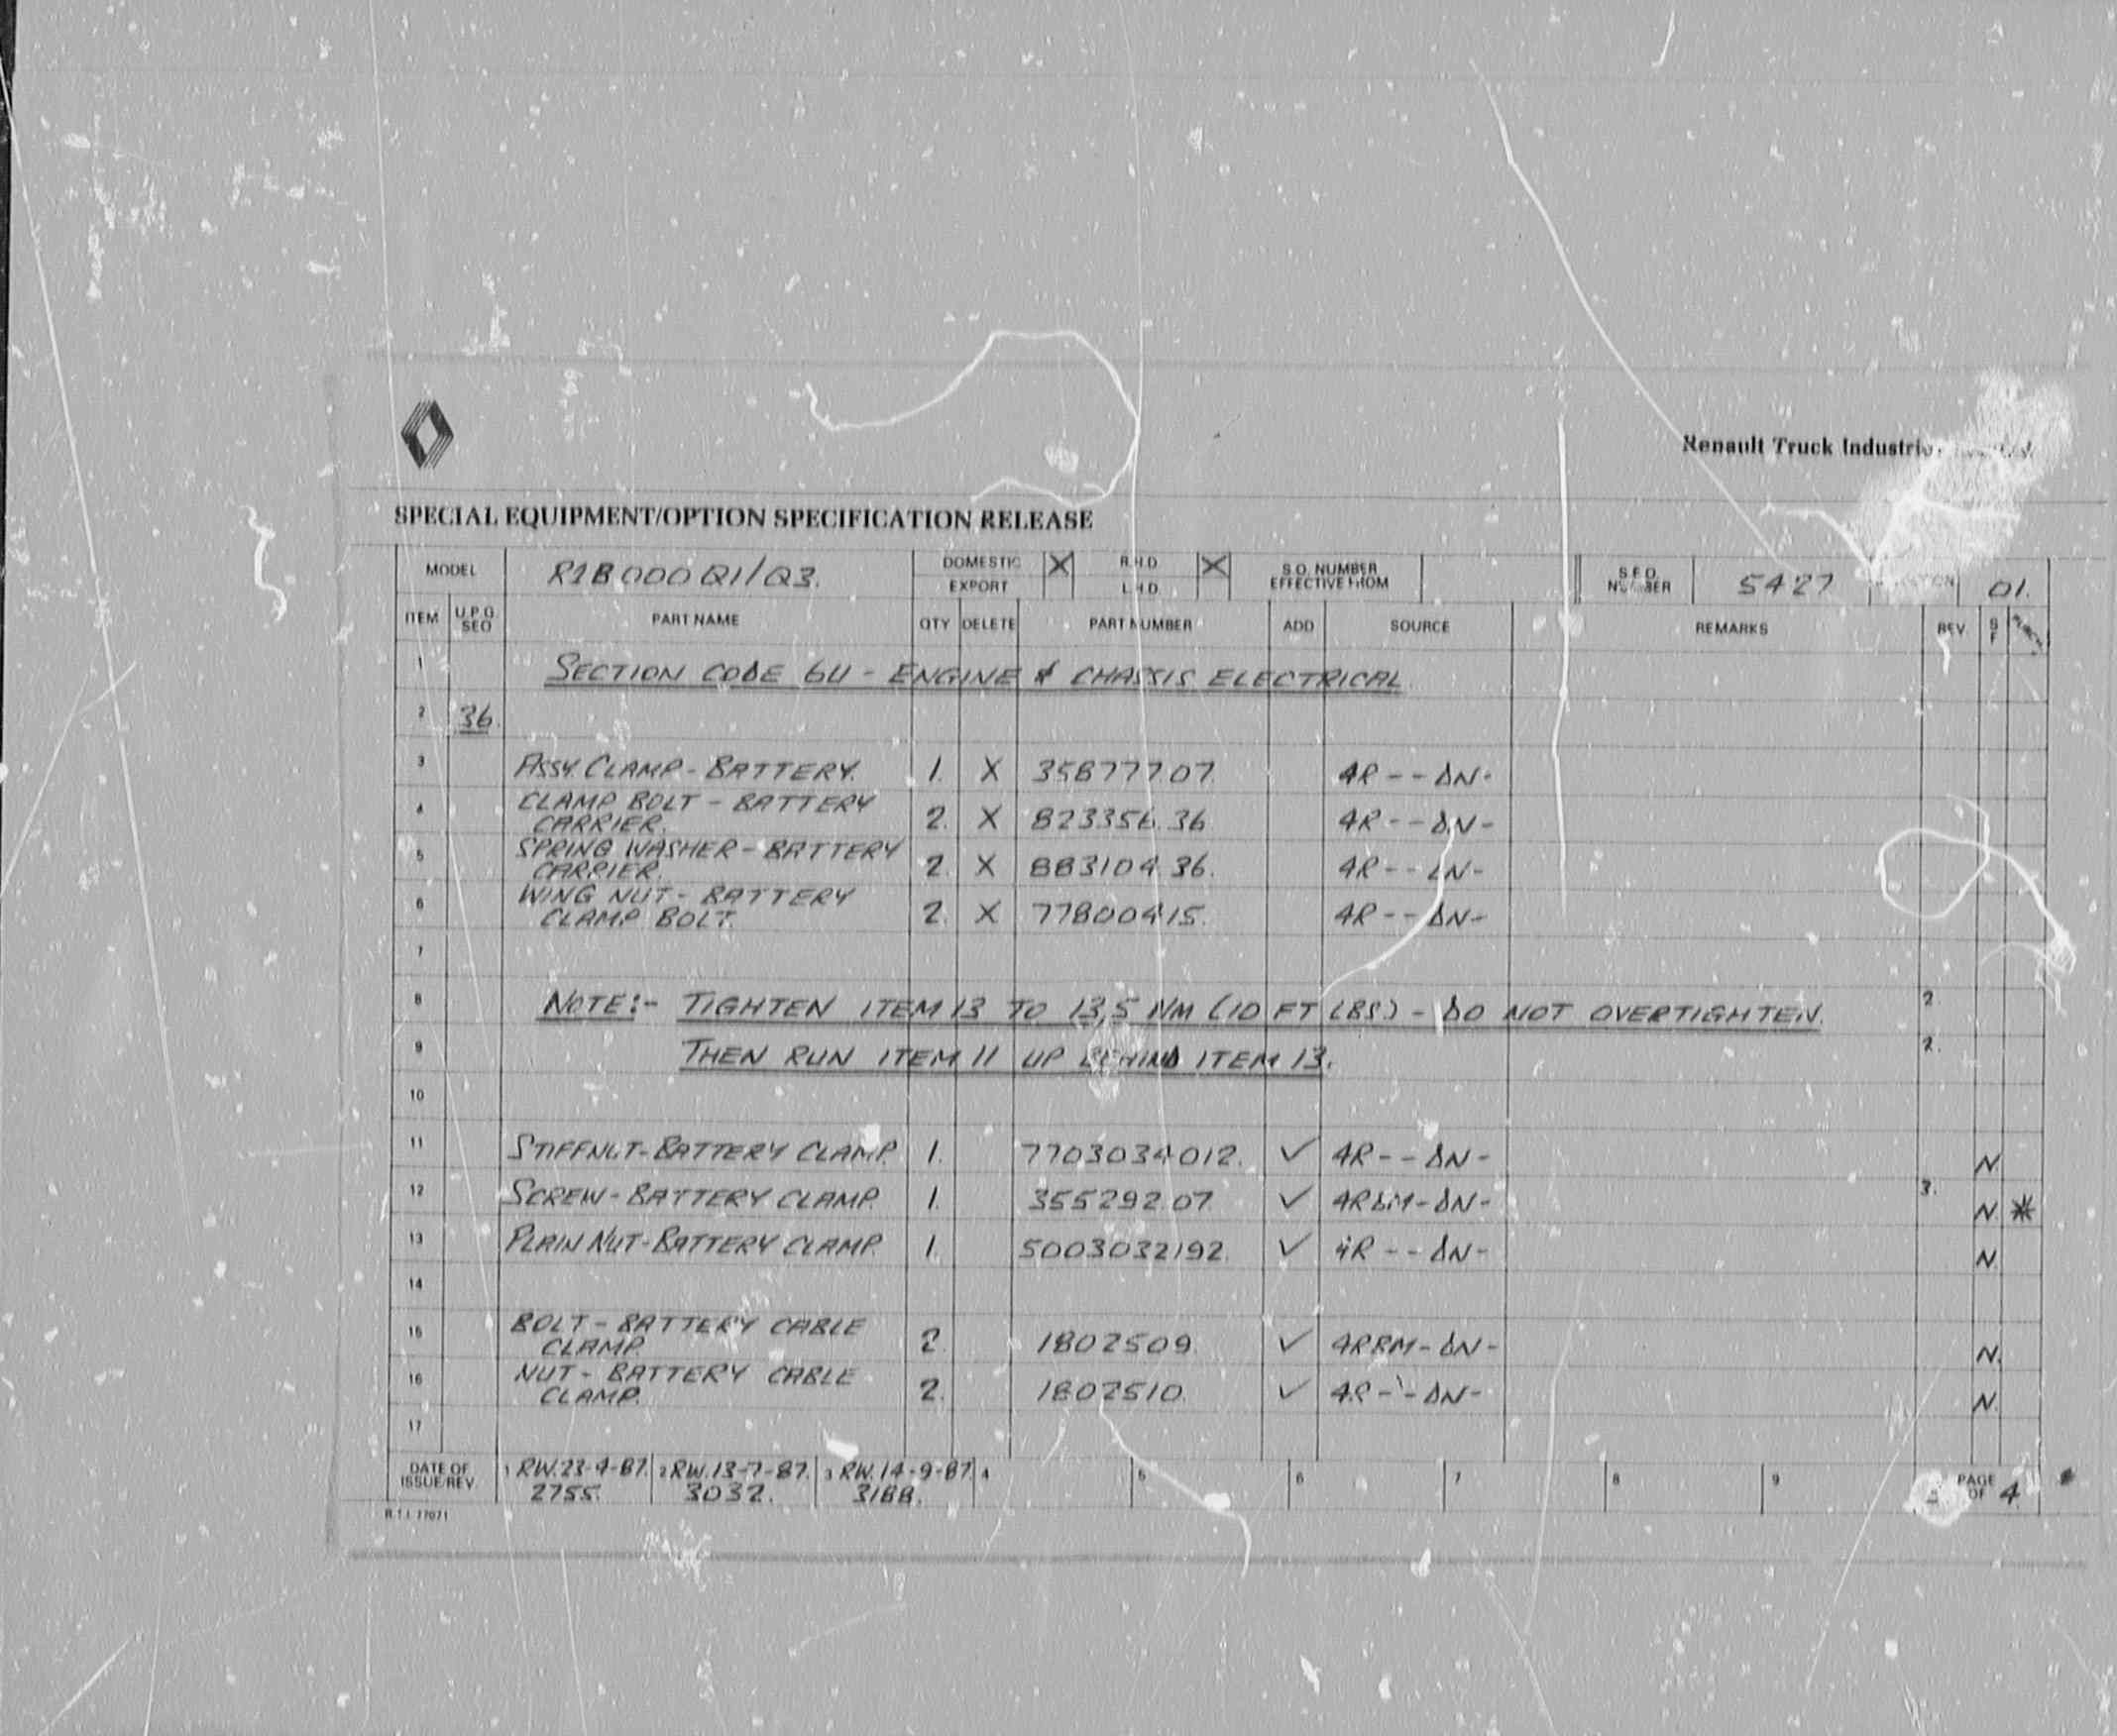 Renault Truck
SPECIAL EQUIPMENT/OPTION SPECIFICATION RELEASE
MODEL R1B000Q1/Q3. DOMESTIC X R.H.D X S.O. NUMBER S.E.O. 5427 01.
EXPORT L.H.D. EFFECTIVE FROM NUMBER
ITEM U.P.G. SEQ PART NAME QTY DELETE PART NUMBER ADD SOURCE REMARKS REV S F
1 SECTION CODE 6U - ENGINE & CHASSIS ELECTRICAL
2 36.
3 ASSY. CLAMP - BATTERY. 1. X 35877707. 4R--DN-
4 CLAMP BOLT - BATTERY
CARRIER. 2. X 823356.36 4R--DN-
5 SPRING WASHER - BATTERY
CARRIER. 2. X 883104.36. 4R--DN-
6 WING NUT - BATTERY
CLAMP BOLT. 2. X 77800415. 4R--DN-
7
8 NOTE:- TIGHTEN ITEM 13 TO 13,5 NM (10 FT LBS) - DO NOT OVERTIGHTEN. 2
9 THEN RUN ITEM 11 UP BEHIND ITEM 13. 2.
10
11 STIFFNUT-BATTERY CLAMP. 1. 7703034012. ✓ 4R--DN- N
12 SCREW-BATTERY CLAMP. 1. 355292.07. ✓ 4RDM-DN- 3. N *
13 PLAIN NUT-BATTERY CLAMP. 1. 5003032192. ✓ 4R--DN- N
14
15 BOLT - BATTERY CABLE
CLAMP. 2 1802509. ✓ 4RRM-DN- N.
16 NUT - BATTERY CABLE
CLAMP. 2. 1802510. ✓ 4R--DN- N.
17
DATE OF 1 RW.23-4-87. 2 RW.13-7-87. 3 RW.14-9-87. 4 5 6 7 8 9 PAGE
ISSUE/REV. 2755. 3032. 3188. OF 4
R.T.I. 77071